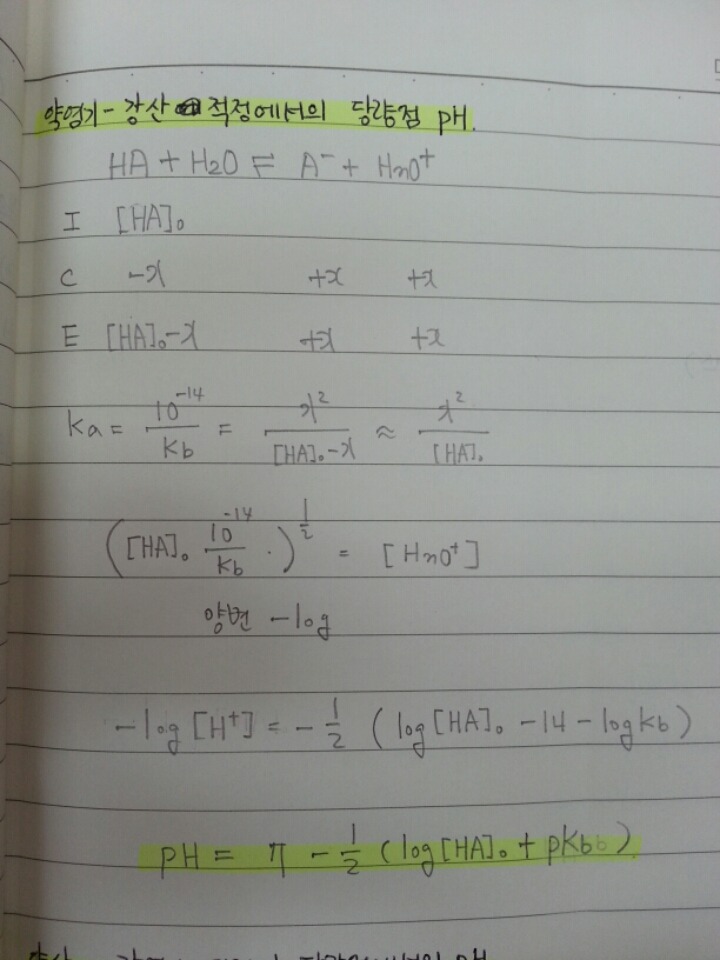 약염기-강산 적정에서의 당량점 pH.
HA + H2O ⇌ A⁻ + H3O⁺
I [HA]₀
C -x +x +x
E [HA]₀-x +x +x
Ka = 10⁻¹⁴/Kb = x²/([HA]₀-x) ≈ x²/[HA]₀
([HA]₀ 10⁻¹⁴/Kb ·)^(1/2) = [H3O⁺]
양변 -log
-log[H⁺] = -1/2 (log[HA]₀ -14 -logKb)
pH = 7 - 1/2 (log[HA]₀ + pKb)